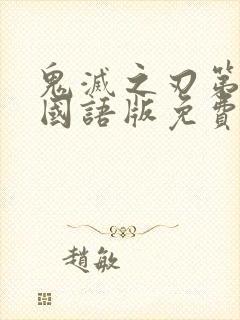 鬼滅之刃第
國語版免費
趙敏